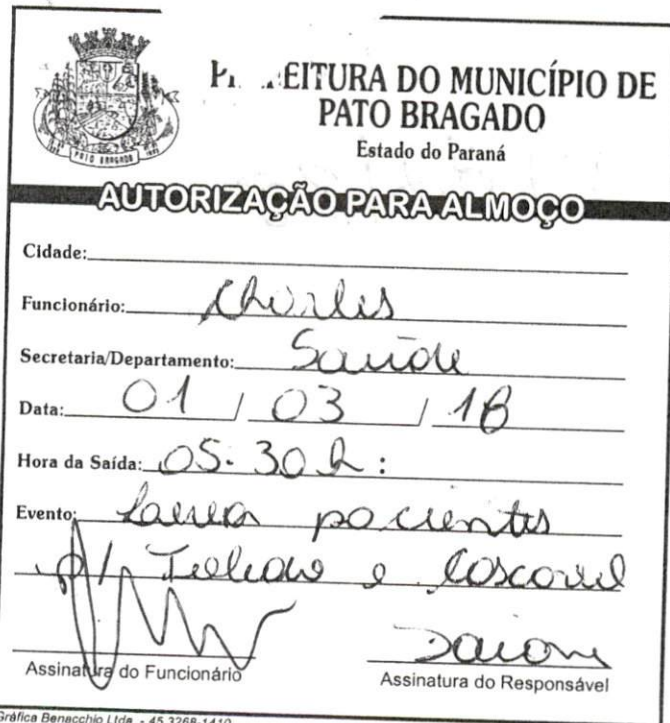 P EITURA DO MUNICÍPIO DE
PATO BRAGADO
Estado do Paraná
PATO BRAGADO
AUTORIZAÇÃO PARA ALMOÇO
Cidade:
Funcionário: Charles
Secretaria/Departamento: Saúde
Data: 01 / 03 / 18
Hora da Saída: 05:30 h :
Evento: Levar pacientes
p/ Toledo e Cascavel
Daiane
Assinatura do Funcionário Assinatura do Responsável
Gráfica Benacchio Ltda. - 45 3268-1410